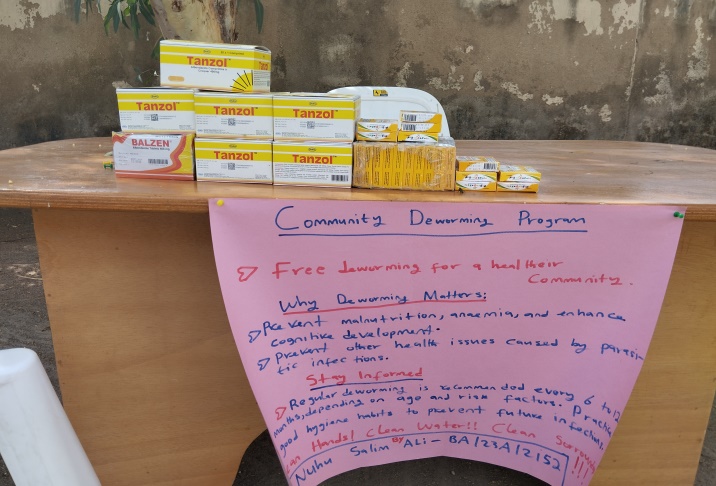 Tanzol™
Tanzol™
Tanzol™
Tanzol™
BALZEN™
Tanzol™
Tanzol™
Community Deworming Program
Free deworming for a healtheir
Community.
Why Deworming Matters:
Prevent malnutrition, anaemia, and enhance
cognitive development.
Prevent other health issues caused by parasi-
tic infections.
Stay Informed
Regular deworming is recommended every 6 to 12
months, depending on age and risk factors. Practice
good hygiene habits to prevent future infections
Hands! Clean Water!! Clean
Nuhu Salim Ali - BA/23A/2152